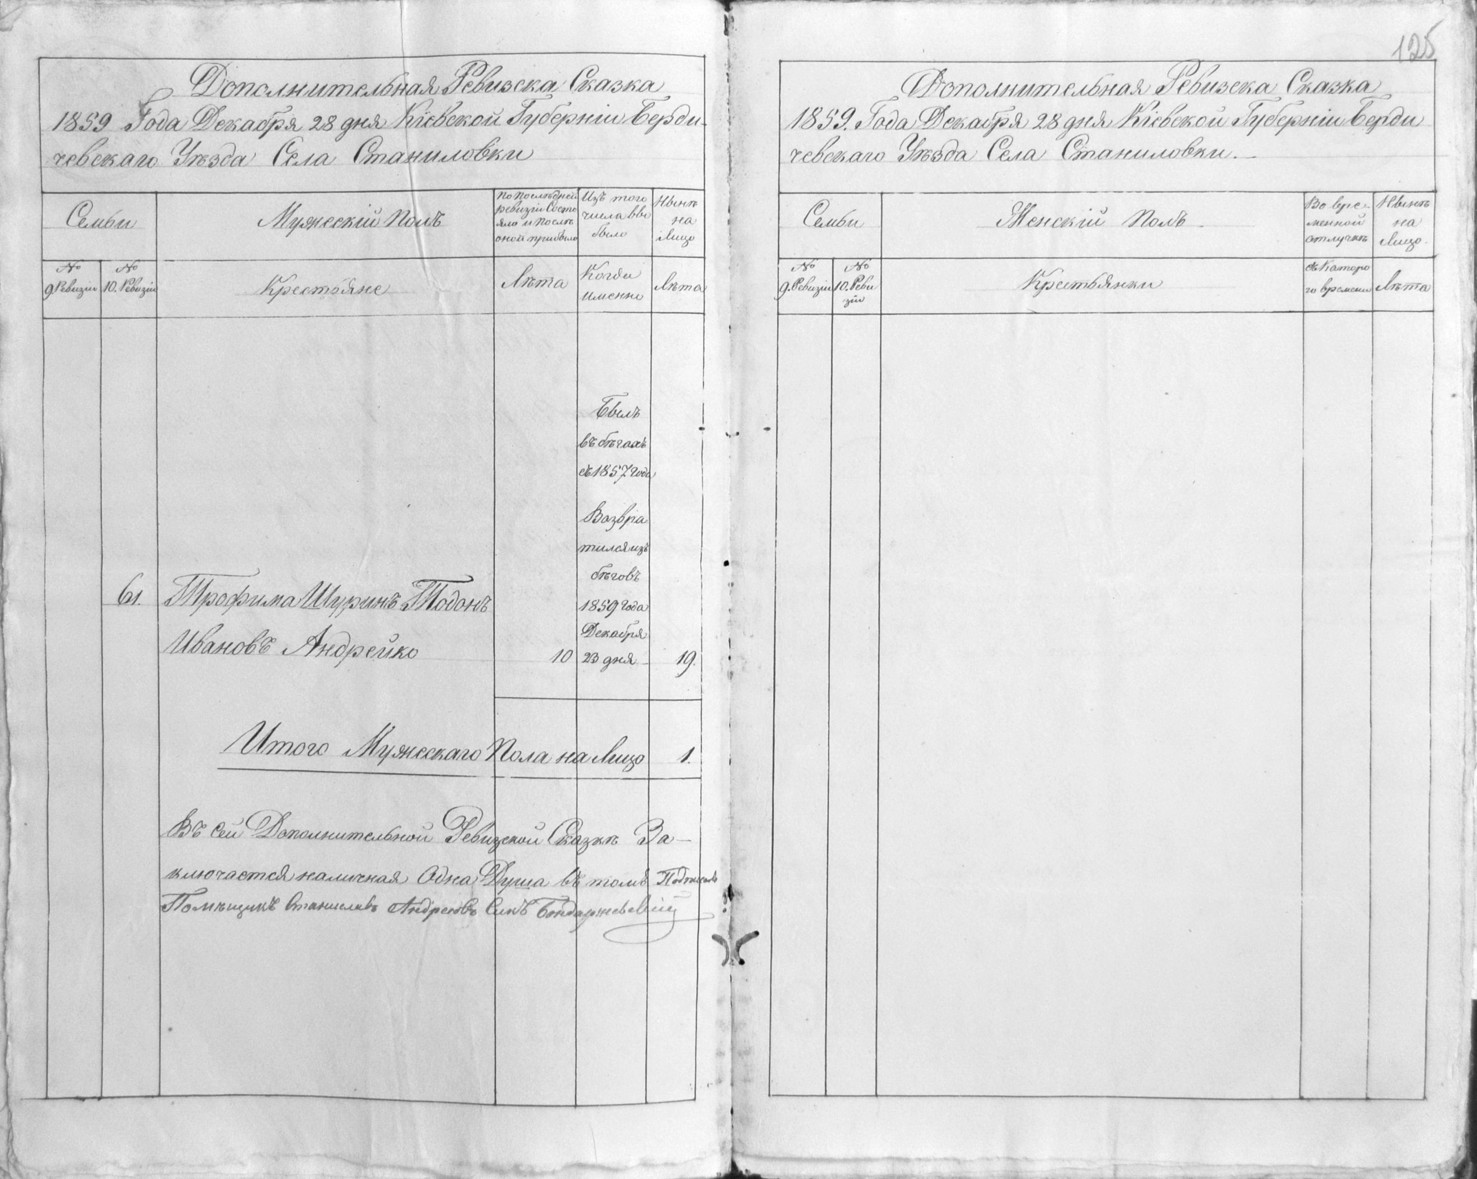 Дополнительная Ревизска Сказка
1859 Года Декабря 28 дня Кіевской Губерніи Берди-
чевскаго Уѣзда Села Станиловки
Семьи
Мужескій Полъ
По последней
ревизіи Состо
яло и послѣ
оной прибыло
Изъ того
числа вы
было
Нынѣ
на
Лицо
№
9 Ревизіи
№
10. Ревизіи
Крестьяне
Лѣта
Когда
именно
Лѣта
Былъ
въ бѣгахъ
съ 1857 года
Возвра
тился изъ
бѣговъ
1859 года
Декабря
23 дня
61. Трофима Шуринъ Тодонъ
Ивановъ Андрейко 10 19.
Итого Мужескаго Пола на Лицо 1.
Въ сей Дополнительной Ревизской Сказкѣ За-
ключается наличная Одна Душа въ томъ
Помѣщикъ Станиславъ Андреевъ Сынъ
125
Дополнительная Ревизска Сказка
1859. Года Декабря 28 дня Кіевской Губерніи Берди
чевскаго Уѣзда Села Станиловки.
Семьи
Женскій Полъ
Во вре-
менной
отлучкѣ
Нынѣ
на
Лицо.
№
9. Ревизіи
№
10. Реви
зіи
Крестьянки
съ Каторо
го времени
Лѣта